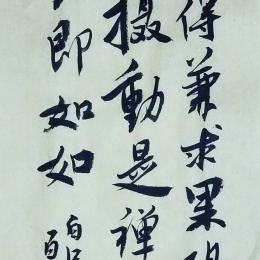 得兼求果
摄動是禅
即如如